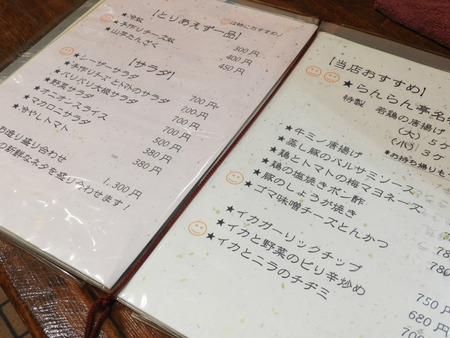 【とりあえず一品】
は特におすすめ！
★冷奴 300円
★手作りチーズ奴 400円
★山芋たんざく 450円
【サラダ】
★シーザーサラダ 700円
★手作りチーズとトマトのサラダ 700円
★野菜サラダ
★パリパリ大根サラダ 700円
★オニオンスライス 500円
★マカロニサラダ 380円
★冷やしトマト 380円
お造り盛り合わせ 1,300円
を盛り合わせます！
【当店おすすめ】
★らんらん亭名物
特製 若鶏の唐揚げ
(大) 5ケ
(小) 3ケ
★お持ち帰りも
★牛ミノ唐揚げ
★蒸し豚のバルサミソース
★鶏とトマトの梅マヨネーズ
★鶏の塩焼きポン酢
★豚のしょうが焼き
★ゴマ味噌チーズとんかつ
★イカガーリックチップ 750円
★イカと野菜のピリ辛炒め 680円
★イカとニラのチヂミ 700